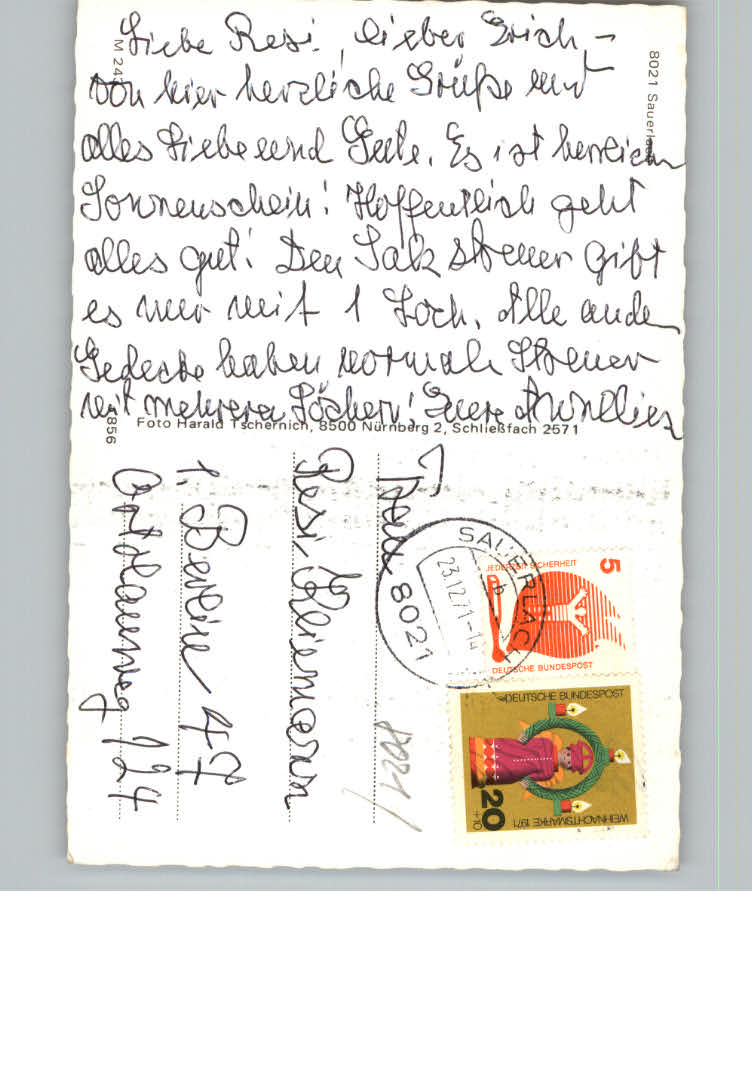 Liebe Resi, lieber Erich, –
von hier herzliche Grüße und
alles Liebe und Gute. Es ist herrlich
Sonnenschein! Hoffentlich geht
alles gut! Den Salzstreuer gibt
es nur mit 1 Loch. Alle anden
Gedecke haben normale Streuer
mit mehreren Löchern! Euere
Foto Harald Tschernich, 8500 Nürnberg 2, Schließfach 2571
8021 Sauerlach
M 24
856
Frau
Resi
1. Berlin 47
124
8021
SAUERLACH
b
23.12.71-14
8021
JEDERZEIT SICHERHEIT
5
DEUTSCHE BUNDESPOST
DEUTSCHE BUNDESPOST
20
+10
WEIHNACHTSMARKE 1971